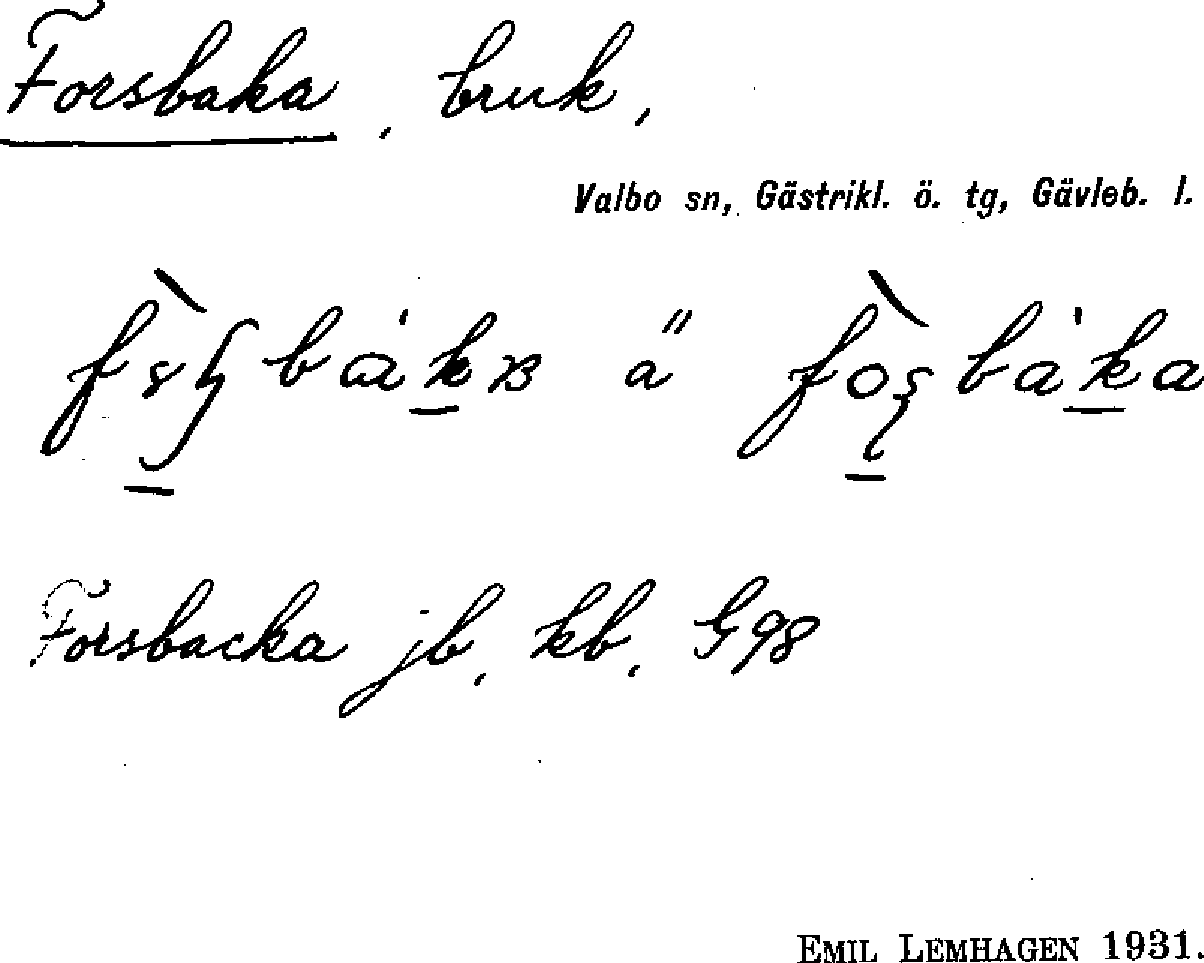 Forsbaka, bruk,
Valbo sn, Gästrikl. ö. tg, Gävleb. l.
ä
Forsbacka jb, kb, G98
EMIL LEMHAGEN 1931.